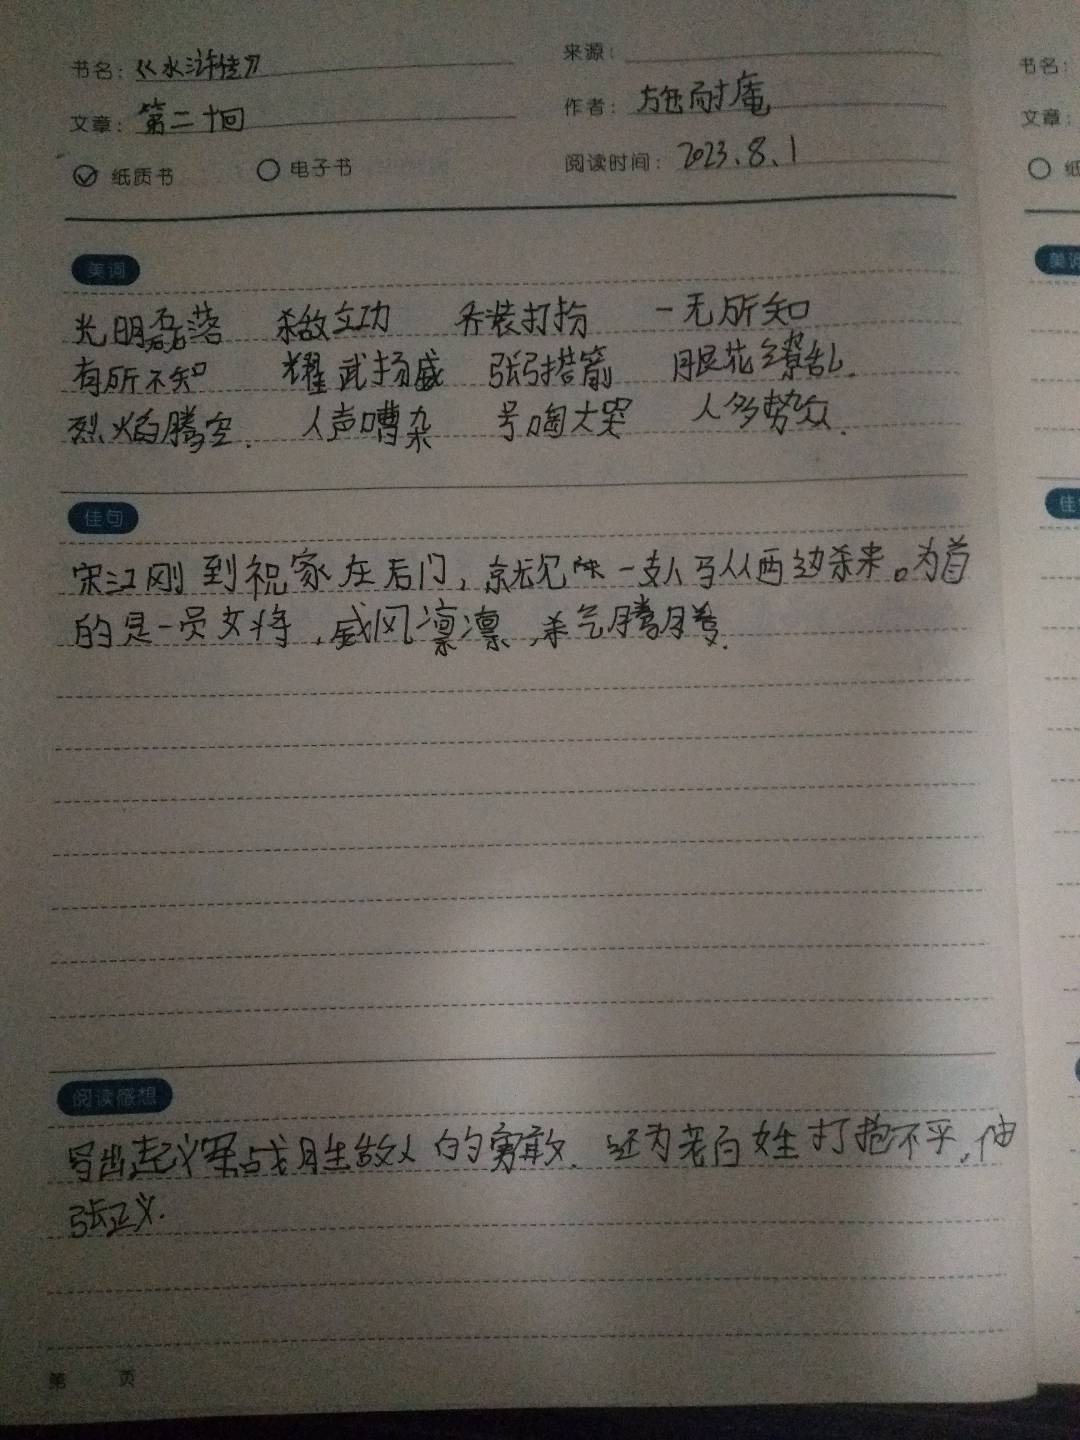 书名：《水浒传》 来源：
文章：第二十回 作者：施耐庵
纸质书 电子书 阅读时间：2023.8.1
美词
光明磊落 杀敌立功 乔装打扮 一无所知
有所不知 耀武扬威 张弓搭箭 眼花缭乱.
烈焰腾空. 人声嘈杂 号啕大哭 人多势众.
佳句
宋江刚到祝家庄后门，就见 一支人马从西边杀来。为首
的是一员女将，威风凛凛，杀气腾腾.
阅读感想
写出起义军战胜敌人的勇敢. 还为老百姓打抱不平，伸
张正义.
第 页
书名：
文章：
纸
美词
佳